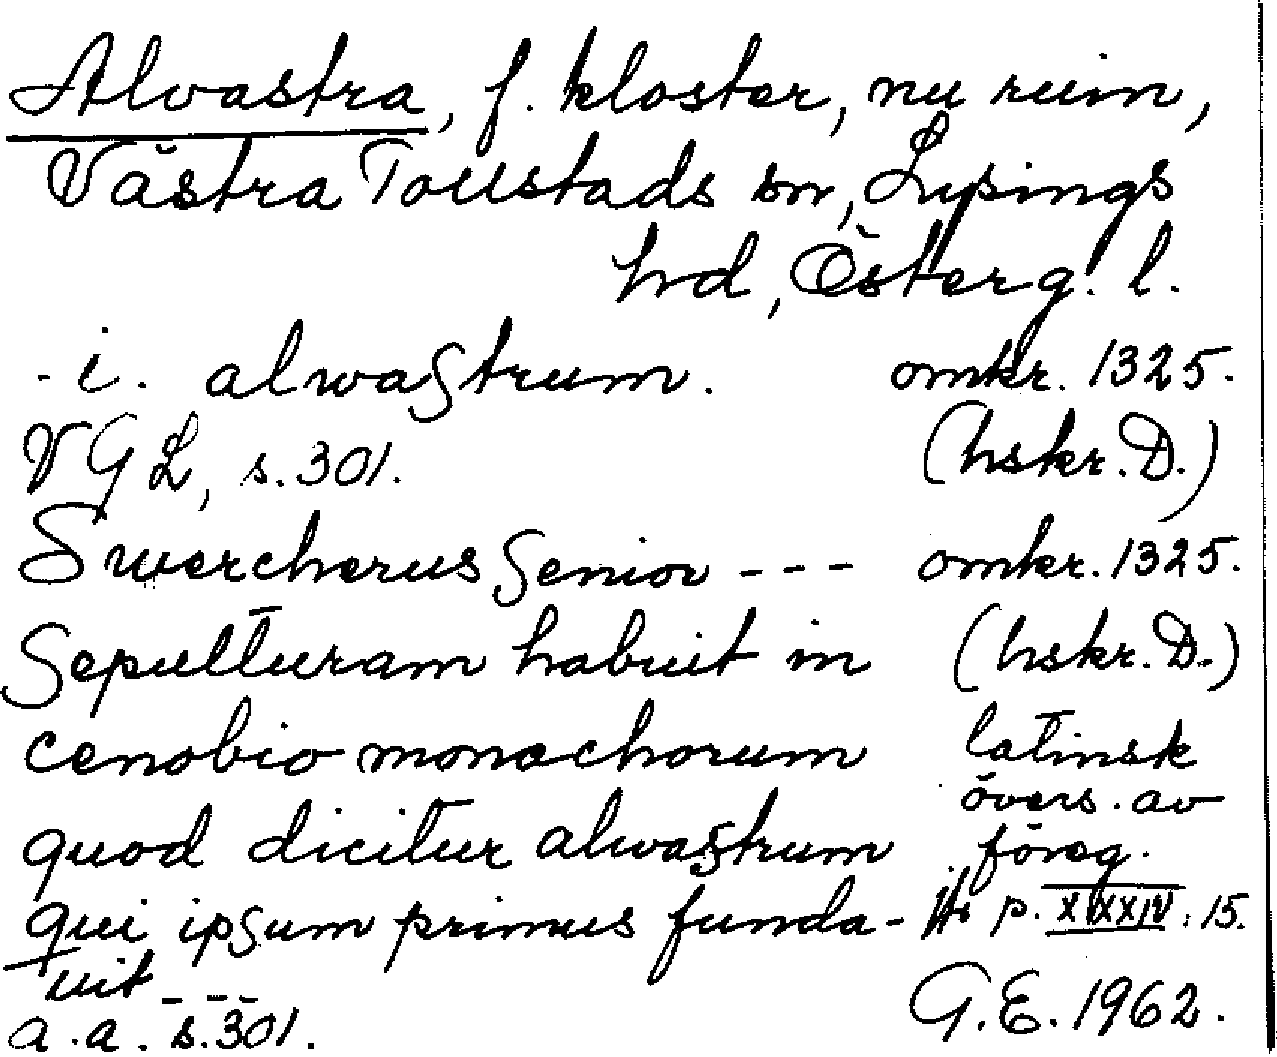 Alvastra, f. kloster, nu ruin,
Västra Tollstads sn, Lysings
hd, Österg. l.
- i. alwastrum. omkr. 1325.
VGL, s. 301. (hskr. D.)
Swercherus Senior - - - omkr. 1325.
Sepulturam habuit in (hskr. D.)
cenobio monachorum latinsk
övers. av
quod dicitur alwastrum föreg.
qui ipsum primus funda- p. XXXIV: 15.
uit - - -
a. a. s. 301. G.E. 1962.